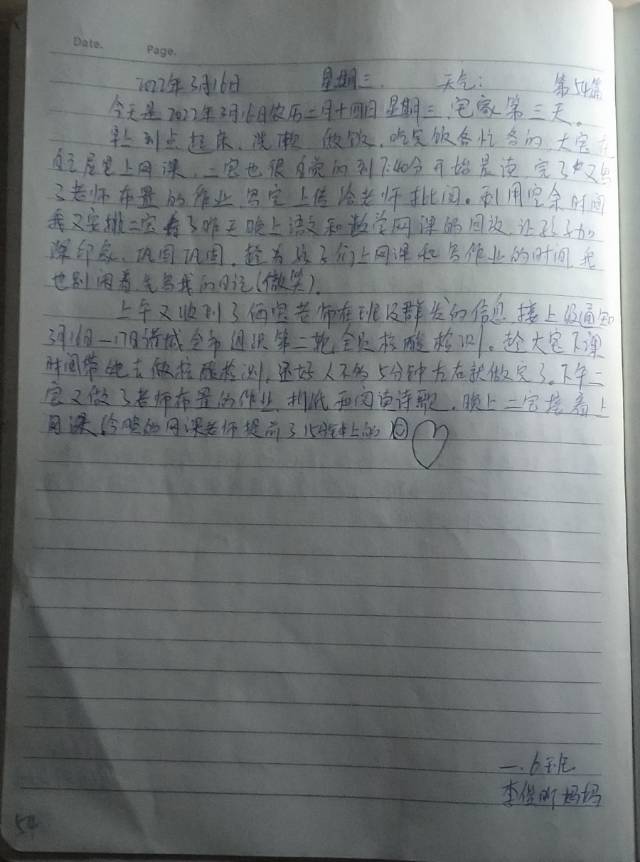 Date. Page.
2022年3月16日 星期三. 天气: 第54篇
今天是2022年3月16日农历二月十四日星期三,宅家第三天。
早上到点起床,洗漱 做饭,吃完饭各忙各的,大宝在
自己屋里上网课,二宝也很自觉的到7:40分开始晨读,完了又写
了老师布置的作业 写完上传给老师批阅。利用空余时间
我又安排二宝看了昨天晚上语文和数学网课的回放,让孩子加
深印象、巩固巩固,趁着孩子们上网课和写作业的时间 我
也别闲着先写我的日记(微笑)。
上午又收到了两宝老师在班级群发的信息,接上级通知
3月16日—17日诸城全市组织第二轮全员核酸检测。趁大宝下课
时间带她去做核酸检测,还好人不多5分钟左右就做完了。下午二
宝又做了老师布置的作业,折纸和阅读诗歌。晚上二宝接着上
网课,今晚的网课老师提前了几分钟上的
一.6班
李俊昕妈妈
54